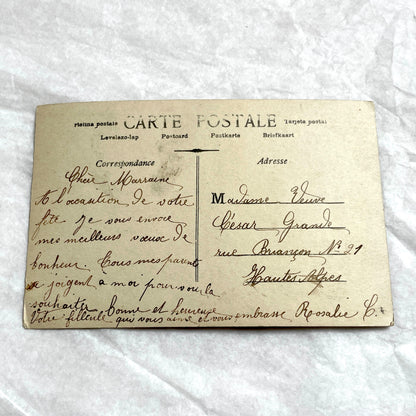 rtolina postale CARTE POSTALE Tarjeta postal
Levelezo-lap Postcard Postkarte Briefkaart
Correspondance
Chère Marraine
A l'occasition de votre
fête je vous envoie
mes meilleurs vœux de
bonheur. Tous mes parents
se joigent à moi pour vous la
souhaiter bonne et heureuse
Votre filleule qui vous aime et vous embrasse Rosalie C.
Adresse
Madame Veuve
César Grande
rue Briançon Nº 21
Hautes Alpes